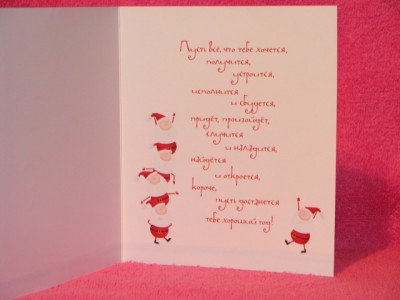 Пусть всё, что тебе хочется,
получится,
устроится,
исполнится
и сбудется,
придёт, произойдёт,
случится
и наладится,
найдётся
и откроется,
короче,
пусть достанется
тебе хороший год!